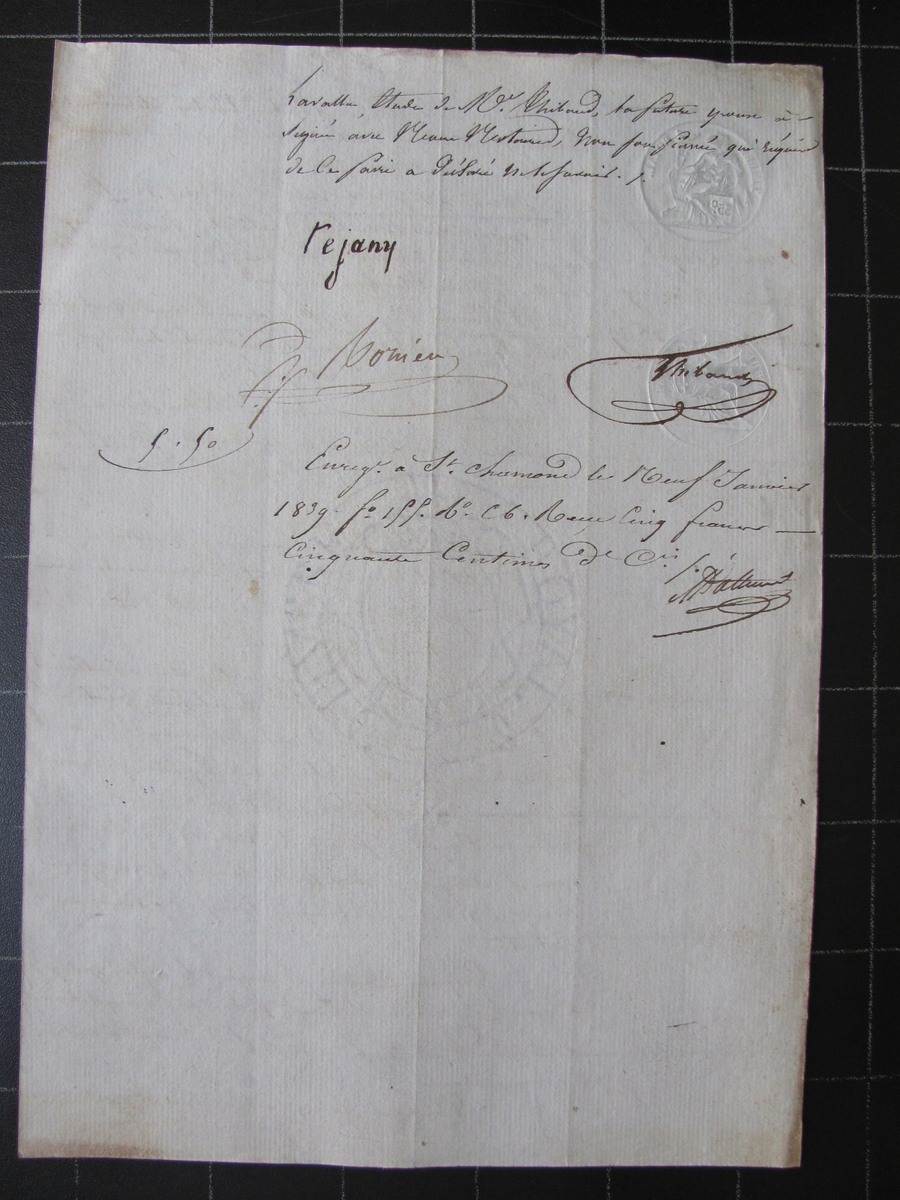 Lavalla Etude de Me Thibaud, la future épouse à
signée avec Nous Notaires, Non son fiancé qui requis
de le faire a déclaré ne le savoir. /.
rejany
Thibaud
5.50
Enregt à St chamond le Neuf Janvier
1839. fo 155. Vo C 6. Recu Cinq francs
Cinquante Centimes De Cis